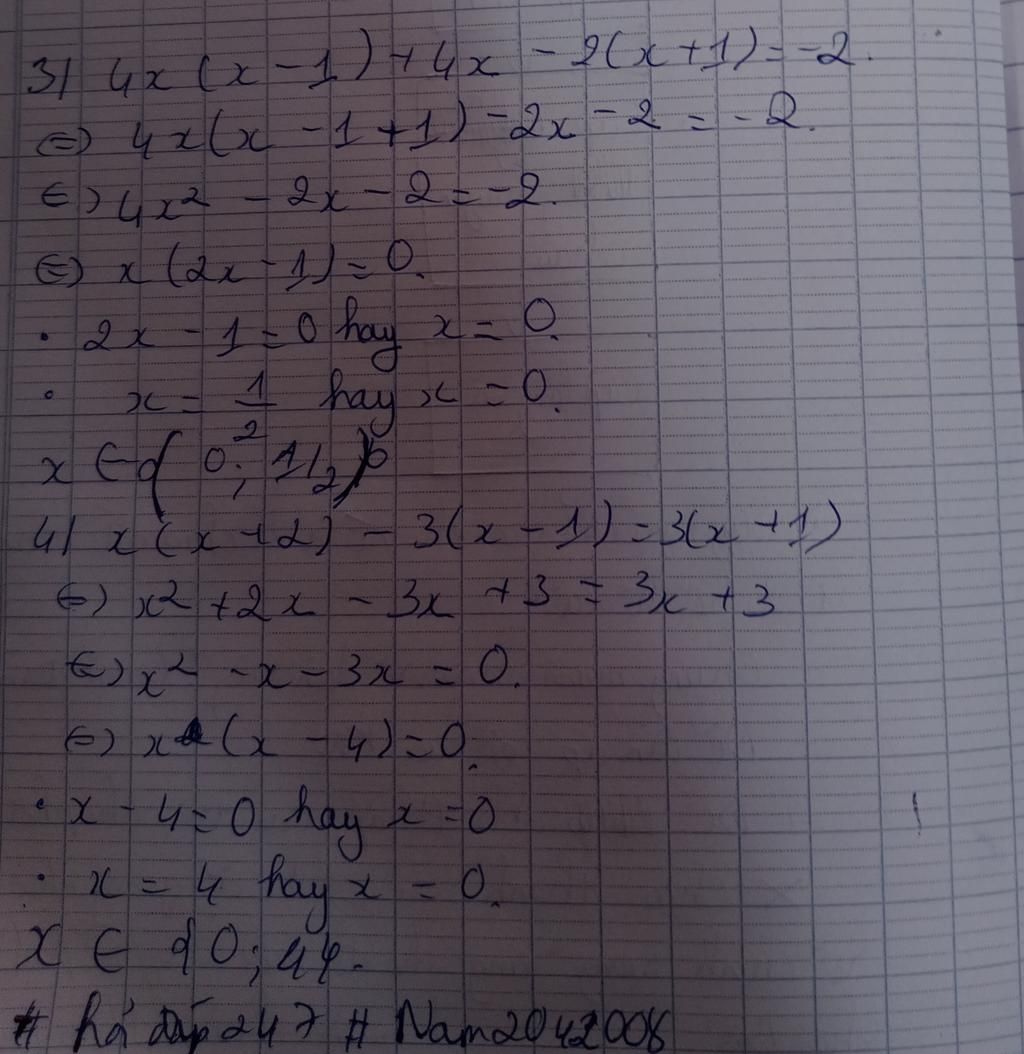 3) 4x(x - 1) + 4x - 2(x + 1) = -2.
⇔) 4x(x - 1 + 1) - 2x - 2 = -2.
⇔) 4x² - 2x - 2 = -2.
⇔) x(2x - 1) = 0.
• 2x - 1 = 0 hay x = 0.
• x = 1/2 hay x = 0.
x ∈ {0; 1/2}
4) x(x + 2) - 3(x - 1) = 3(x + 1)
⇔) x² + 2x - 3x + 3 = 3x + 3
⇔) x² - x - 3x = 0.
⇔) x(x - 4) = 0.
• x - 4 = 0 hay x = 0
• x = 4 hay x = 0.
x ∈ {0; 4}.
# hỏi đáp 247 # Nam2042008